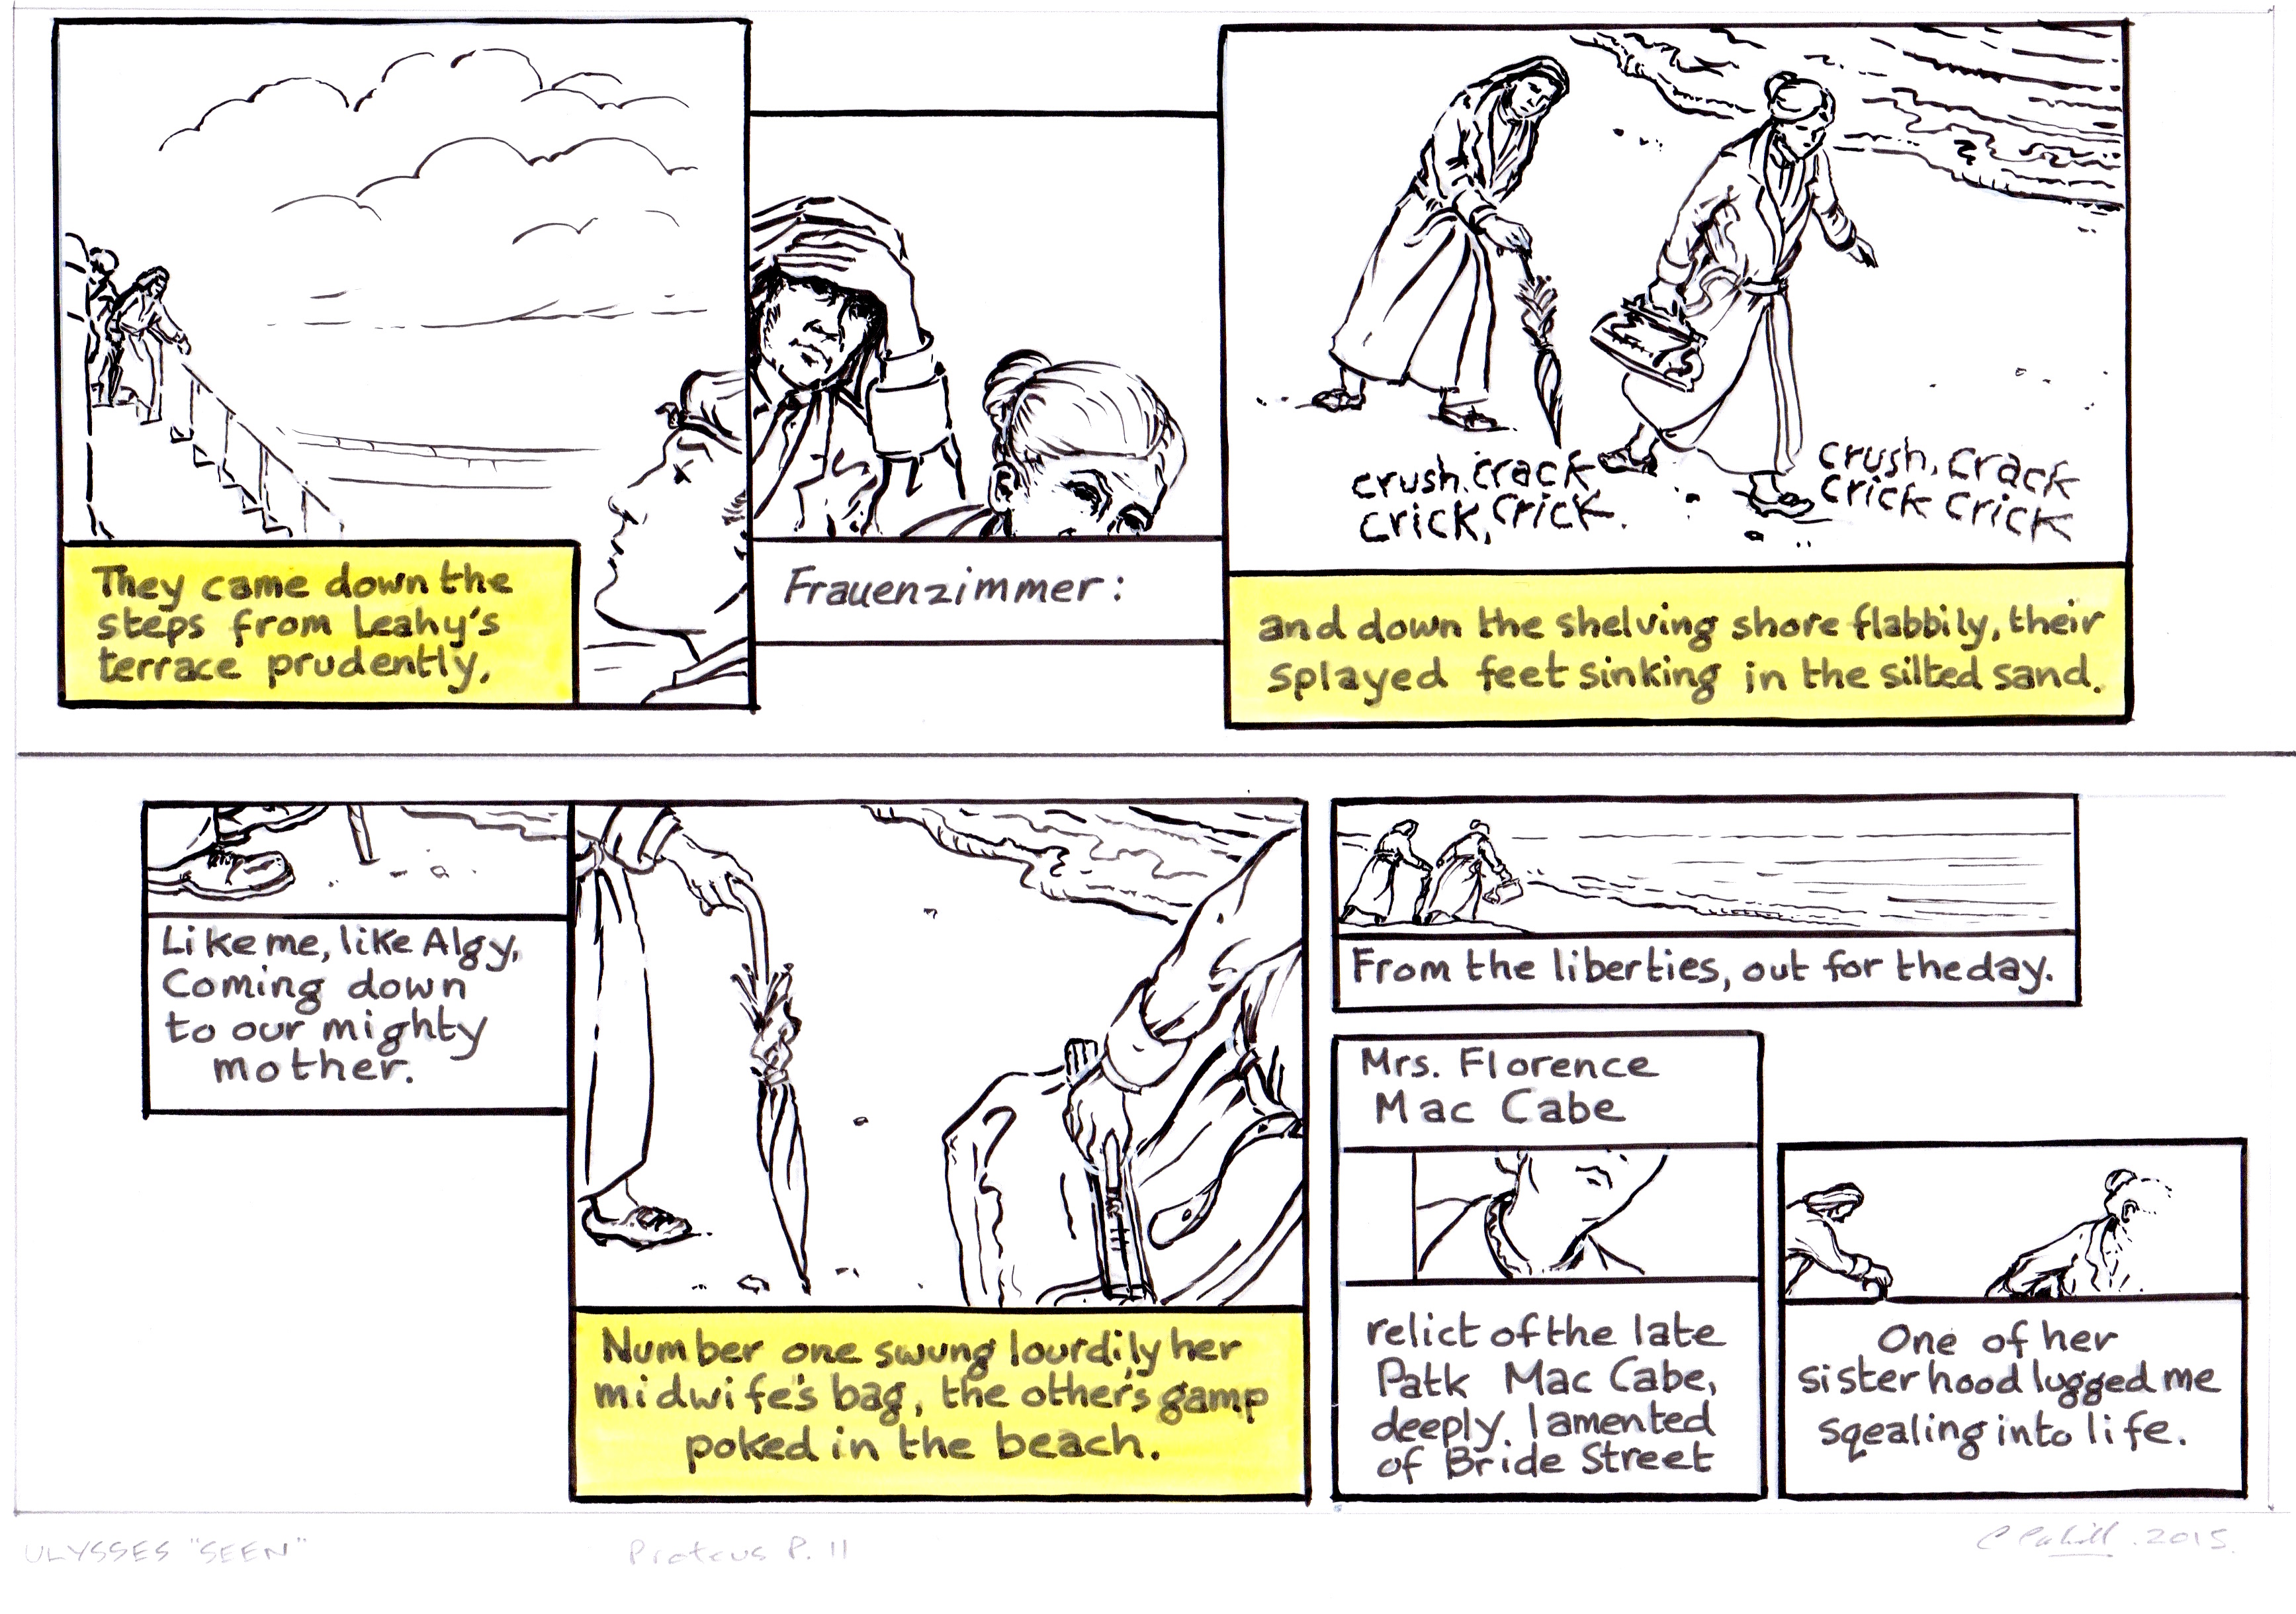 They came down the
steps from Leahy's
terrace prudently,
Frauenzimmer:
crush. crack
crick, crick.
crush, crack
crick crick
and down the shelving shore flabbily, their
splayed feet sinking in the silted sand.
Like me, like Algy,
Coming down
to our mighty
mother.
Number one swung lourdily her
midwife's bag, the other's gamp
poked in the beach.
From the liberties, out for the day.
Mrs. Florence
Mac Cabe
relict of the late
Patk Mac Cabe,
deeply lamented
of Bride Street
One of her
sisterhood lugged me
sqealing into life.
ULYSSES "SEEN"
Proteus P. 11
2015